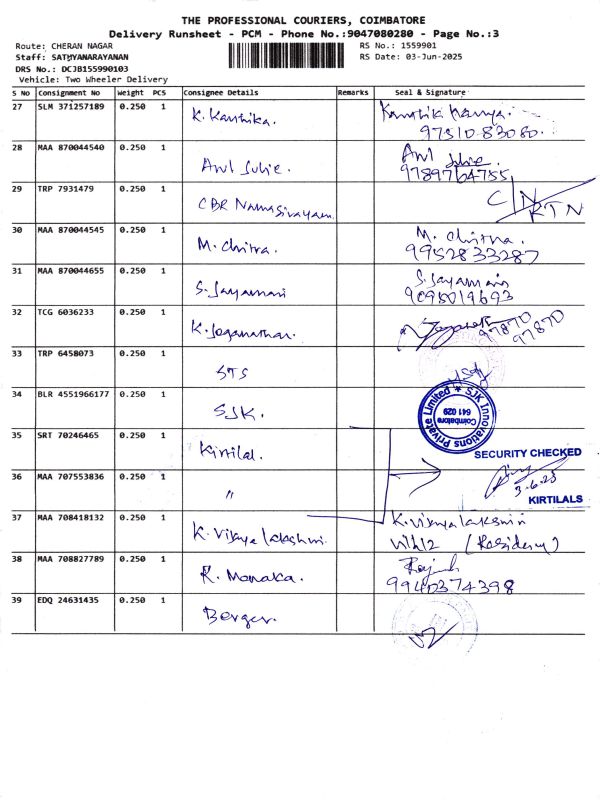 THE PROFESSIONAL COURIERS, COIMBATORE
Delivery Runsheet - PCM - Phone No.:9047080280 - Page No.:3
Route: CHERAN NAGAR
RS No.: 1559901
Staff: SATHYANARAYANAN
RS Date: 03-Jun-2025
DRS No.: DCJB155990103
Vehicle: Two Wheeler Delivery
S No Consignment No Weight PCS Consignee Details Remarks Seal & Signature
27 SLM 371257189 0.250 1 K. Karthika.
97510 83080.
28 MAA 870044540 0.250 1 Arul Julie. Arul Julie.
9789764755
29 TRP 7931479 0.250 1 CBR Namasivayam C/N RTN
30 MAA 870044545 0.250 1 M. Chitra. M. Chitra.
9952833287
31 MAA 870044655 0.250 1 S. Jayamani S. Jayamani
9095019693
32 TCG 6036233 0.250 1 K. Joganathan. 97870
97870
33 TRP 6458073 0.250 1 STS
34 BLR 4551966177 0.250 1 SJK.
SJK Innovations Private Limited
Coimbatore
641 029
35 SRT 70246465 0.250 1 Kirtilal. SECURITY CHECKED
36 MAA 707553836 0.250 1 "
3-6-25
KIRTILALS
37 MAA 708418132 0.250 1 K. Vijaya lakshmi. K. Vijaya lakshmi
38 MAA 708827789 0.250 1 R. Monaka.
9940374398
39 EDQ 24631435 0.250 1 Berger.